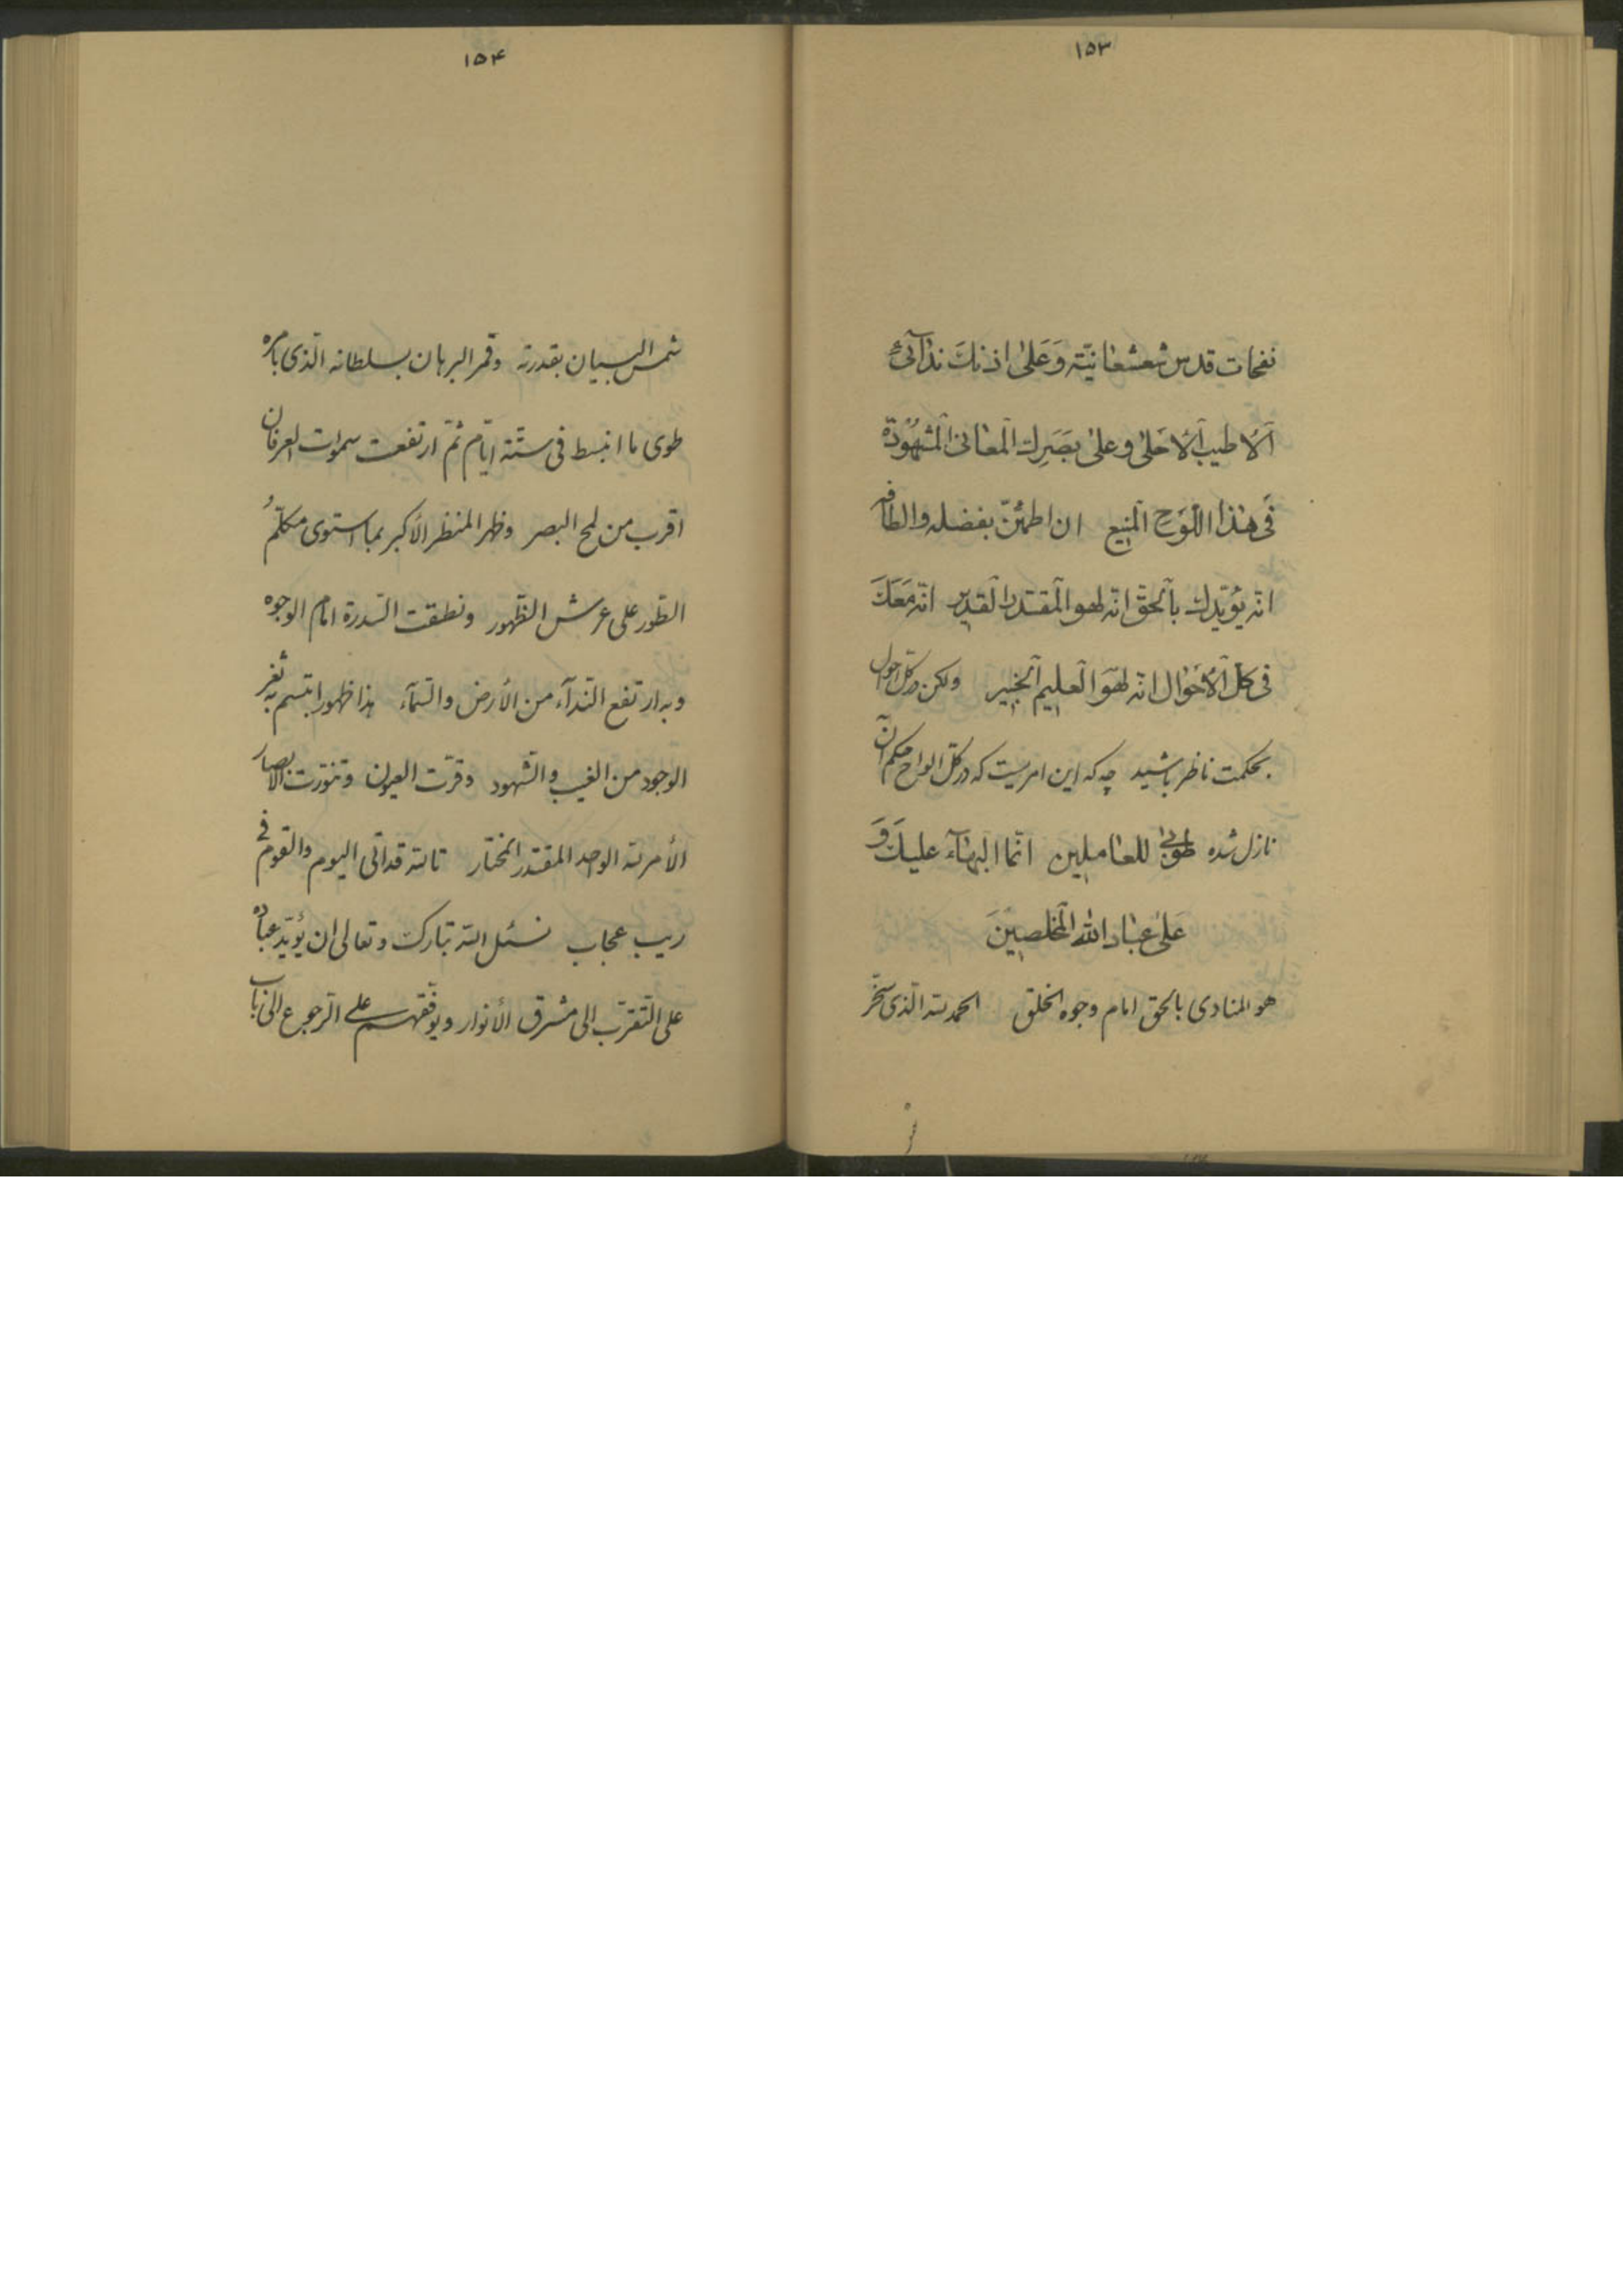 ١٥٣
نفحات قدس شعشعانیّته وَعَلیٰ اذنكَ ندآئی
ٱلأطیب ٱلأحلیٰ و علیٰ بصَرِك ٱلمعانی ٱلمشهُودة
فی هٰذا اللّوح ٱلمنیع ان اطمئنّ بفضله والطافه
انّه یؤیّدك بٱلحقّ انّه لهو ٱلمقتدر ٱلقدیر انّه مَعَكَ
فی كلّ ٱلأحوال انّه لهوَ ٱلعلیم ٱلخبیر ولكن در كلّ احوال
بحكمت ناظر باشید چه كه این امریست كه در كلّ الواح حكم آن
نازل شده طوبیٰ للعٰاملین انّما البهآء علیكَ وَ
عَلیٰ عبٰاد اللّٰه ٱلمخلصینَ
هو المنادی بالحقّ امام وجوه الخلق الحمد للّه الّذی سخّر
١٥۴
شمس البیان بقدرته وقمر البرهان بسلطانه الّذی بأمره
طوی ما انبسط فی ستّة ایّام ثمّ ارتفعت سموات العرفان
اقرب من لمح البصر وظهر المنظر الأكبر بما استوی مكلّمُ
الطّور علی عرش الظّهور ونطقت السّدرة امام الوجوه
وبه ارتفع النّدآء من الأرض والسّمآء هذا ظهور ابتسم به ثغر
الوجود من الغیب والشّهود وقرّت العیون وتنوّرت الأبصار
الأمر للّه الواحد المقتدر المختار تاللّه قد اتی الیوم والقوم فی
ریب عجاب نسئل اللّه تبارك وتعالی ان یؤیّد عباده
علی التّقرّب الی مشرق الأنوار ویوفّقهم علی الرّجوع الی باب